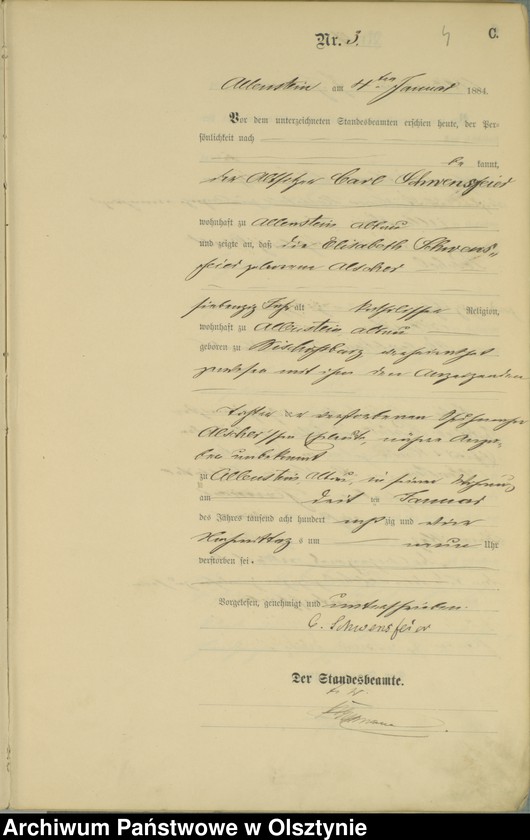 Nr. 5. 4 C.
Allenstein am 4ten Januar 1884.
Vor dem unterzeichneten Standesbeamten erschien heute, der Per-
sönlichkeit nach
be kannt,
der Altsitzer Carl Schwensfeier
wohnhaft zu Allenstein Abbau
und zeigte an, daß die Elisabeth Schwens-
feier geborene Alscher
siebenzig Jahr alt Katholischer Religion,
wohnhaft zu Allenstein Abbau
geboren zu Bischofsburg verheirathet
gewesen mit ihm dem Anzeigenden
Tochter der verstorbenen
Alscher'schen Eheleute, nähere Anga-
ben unbekannt
zu Allenstein Abbau, in seiner Wohnung
am Januar
des Jahres tausend acht hundert acht zig und vier
Nachmittag s um neun Uhr
verstorben sei.
Vorgelesen, genehmigt und unterschrieben.
C. Schwensfeier
Der Standesbeamte.
Archiwum Państwowe w Olsztynie